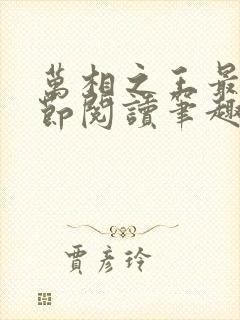 萬相之王最
節閱讀筆趣
賈彥玲